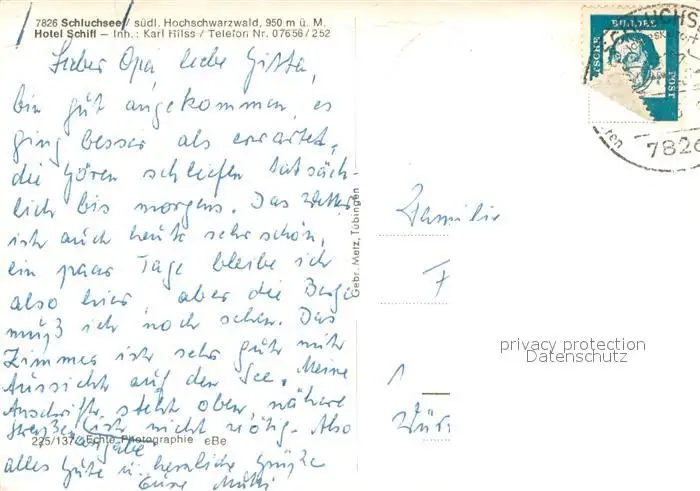 7826 Schluchsee / südl. Hochschwarzwald, 950 m ü. M.
Hotel Schiff – Inh.: Karl Hilss / Telefon Nr. 07656/252
Lieber Opa, liebe Gitta,
bin gut angekommen, es
ging besser als erwartet,
die Gören schliefen tatsäch-
lich bis morgens. Das Wetter
ist auch heute sehr schön,
ein paar Tage bleibe ich
also hier, aber die Berge
muß ich noch sehen. Das
Zimmer ist sehr gut mit
Aussicht auf den See. Meine
Anschrift steht oben, nähere
Straßenangabe ist nicht nötig. Also
225/137 Echte Photographie eBe
alles Gute u. herzliche Grüße
Eure Mutti
Gebr. Metz, Tübingen
DEUTSCHE BUNDESPOST
7826
Familie
F
1
Wür
privacy protection
Datenschutz